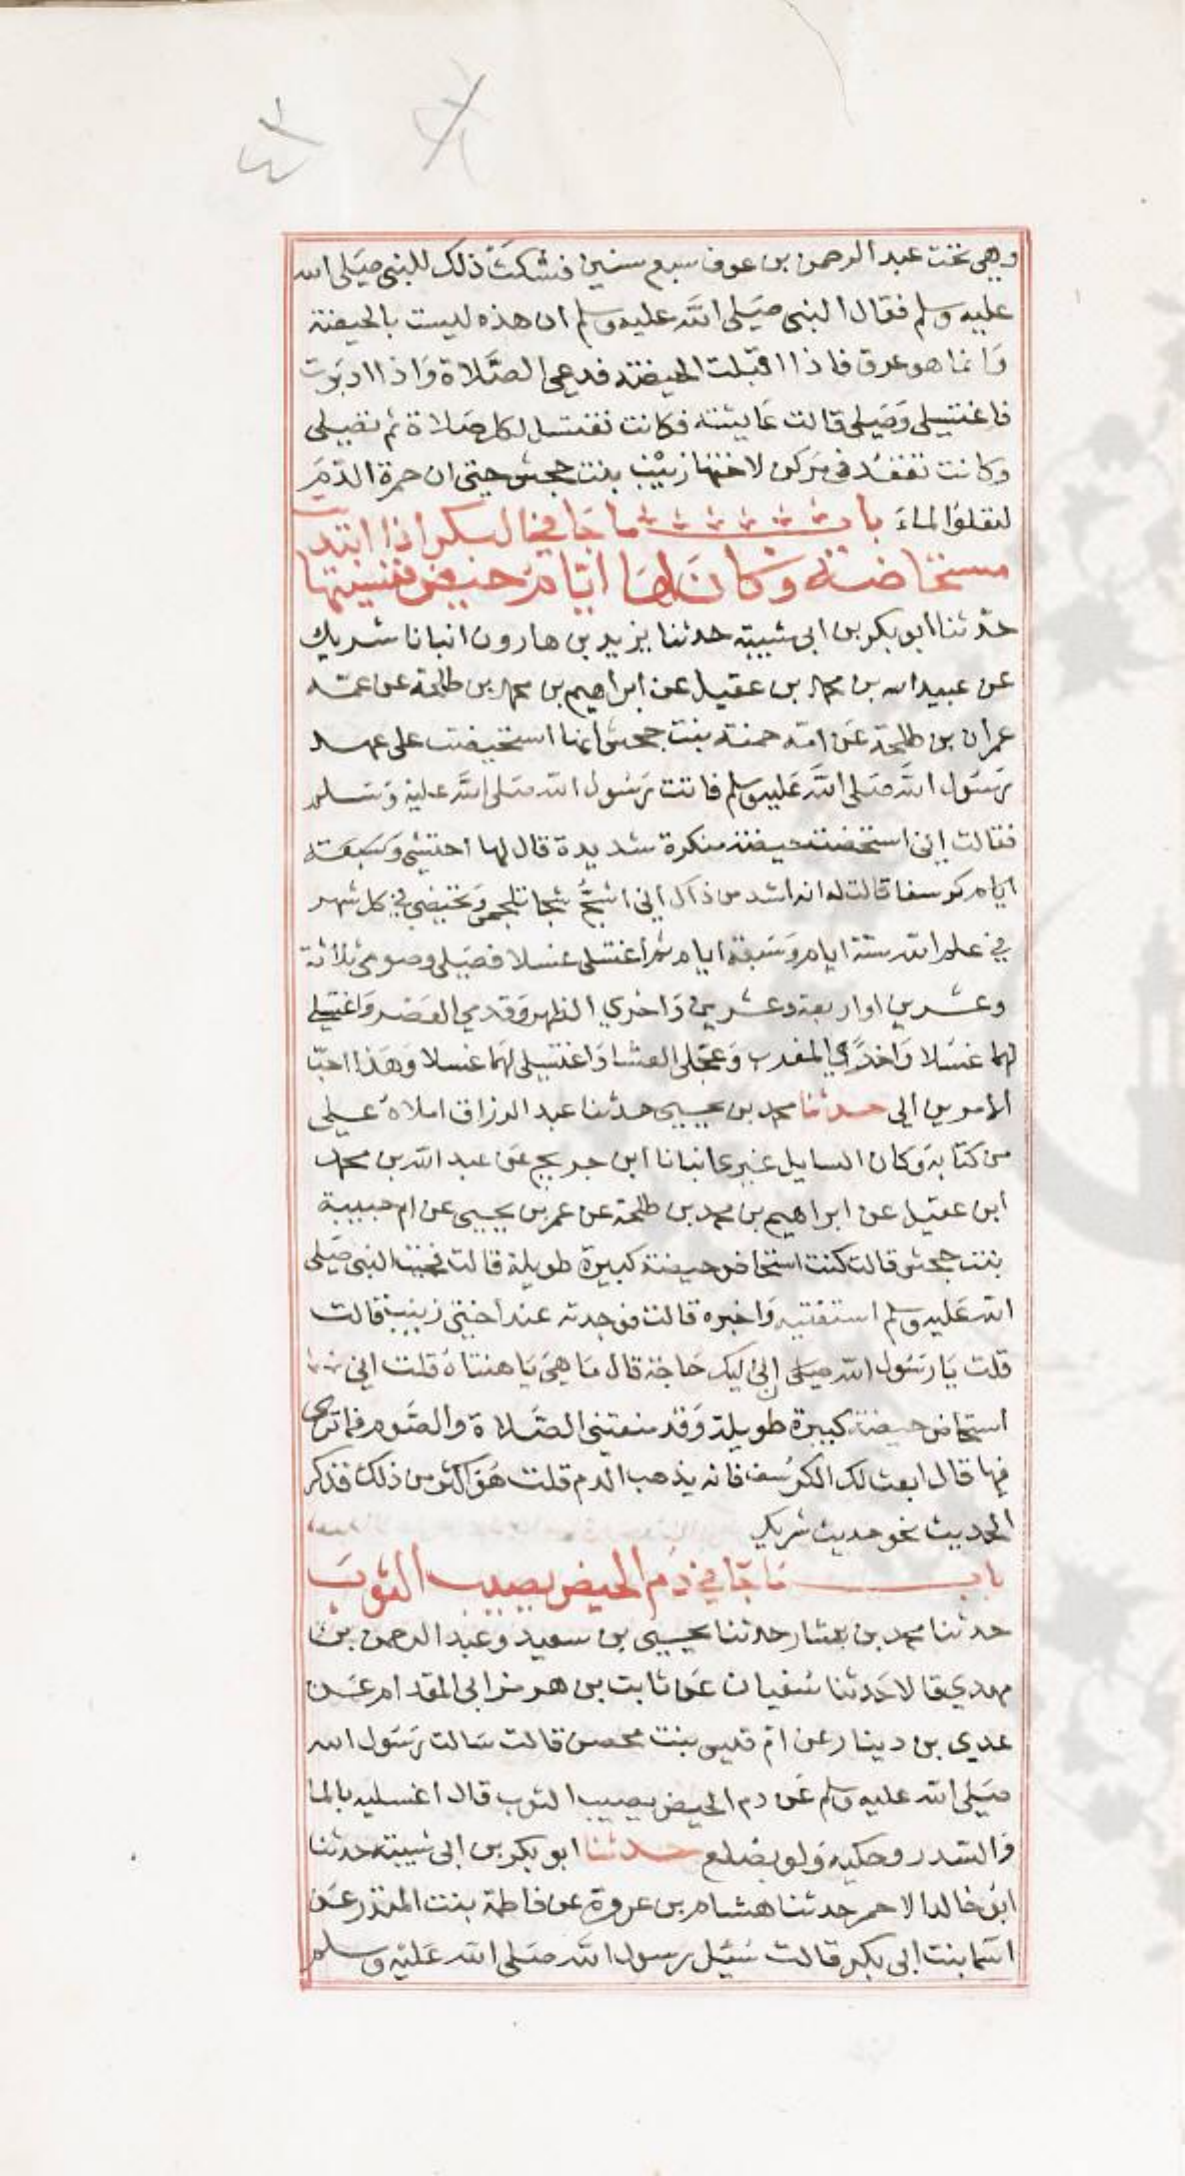 وهي تحت عبد الرحمن بن عوف سبع سنين فشكت ذلك للنبي صلى الله
عليه وسلم فقال النبي صلى الله عليه وسلم ان هذه ليست بالحيضة
وانما هو عرق فاذا اقبلت الحيضة فدعي الصلاة واذا ادبرت
فاغتسلي وصلي قالت عايشة فكانت تغتسل لكل صلاة ثم تصلي
وكانت تقعد في مركن لاختها زينب بنت جحش حتى ان حمرة الدم
لتعلوا الماء باب ما جا في البكر اذا ابتدت
مستحاضة وكان لها ايام حيض فنسيتها
حدثنا ابو بكر بن ابي شيبة حدثنا يزيد بن هارون انبانا شريك
عن عبيد الله بن محمد بن عقيل عن ابراهيم بن محمد بن طلحة عن عمه
عمران بن طلحة عن امه حمنة بنت جحش انها استحيضت على عهد
رسول الله صلى الله عليه وسلم فاتت رسول الله صلى الله عليه وسلم
فقالت اني استحضت حيضة منكرة شديدة قال لها احتشي وسبعة
ايام كرسفا قالت له انه اشد من ذاك اني اثج ثجا تلجمي وتحيضي في كل شهر
في علم الله ستة ايام وسبعة ايام ثم اغتسلي غسلا فصلي وصومي ثلاثة
وعشرين او اربعة وعشرين واخري الظهر وقدمي العصر واغتسلي
لهما غسلا واخري المغرب وعجلي العشا واغتسلي لهما غسلا وهذا احب
الامرين الي حدثنا محمد بن يحيى حدثنا عبد الرزاق املاه علي
من كتابه وكان السايل غيري انبانا ابن جريج عن عبد الله بن محمد
ابن عقيل عن ابراهيم بن محمد بن طلحة عن عمر بن يحيى عن ام حبيبة
بنت جحش قالت كنت استحاض حيضة كبيرة طويلة قالت فجئت النبي صلى
الله عليه وسلم استفتيه واخبره قالت فوجدته عند اختي زينب قالت
قلت يا رسول الله صلى ان لي اليك حاجة قال ما هي يا هنتاه قلت اني
استحاض حيضة كبيرة طويلة وقد منعتني الصلاة والصوم فما ترى
فيها قال ابعث لك الكرسف فانه يذهب الدم قلت هو اكثر من ذلك فذكر
الحديث نحو حديث شريك
باب ما جا في دم الحيض يصيب الثوب
حدثنا محمد بن بشار حدثنا يحيى بن سعيد وعبد الرحمن بن
مهدي قالا حدثنا سفيان عن ثابت بن هرمز ابي المقدام عن
عدي بن دينار عن ام قيس بنت محصن قالت سالت رسول الله
صلى الله عليه وسلم عن دم الحيض يصيب الثوب قال اغسليه بالما
والسدر وحكيه ولو بضلع حدثنا ابو بكر بن ابي شيبة حدثنا
ابو خالد الاحمر حدثنا هشام بن عروة عن فاطمة بنت المنذر عن
اسما بنت ابي بكر قالت سئل رسول الله صلى الله عليه وسلم